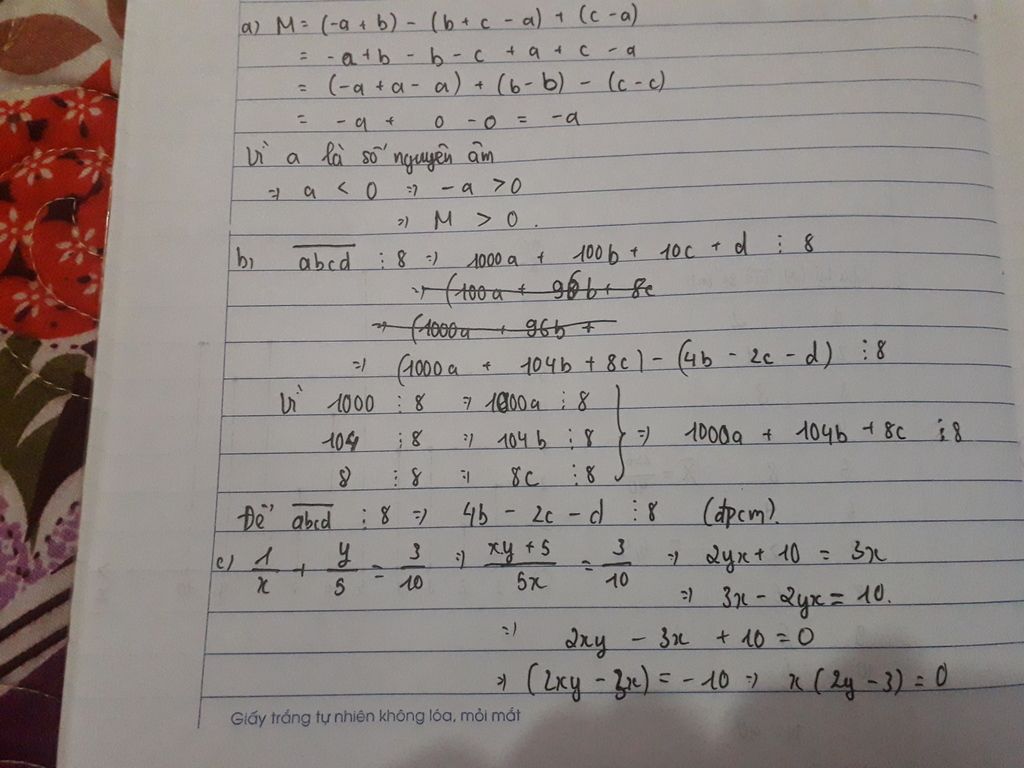 a) M = (-a + b) - (b + c - a) + (c - a)
= -a + b - b - c + a + c - a
= (-a + a - a) + (b - b) - (c - c)
= -a + 0 - 0 = -a
Vì a là số nguyên âm
=> a < 0 => -a > 0
=> M > 0.
b) abcd ⋮ 8 => 1000a + 100b + 10c + d ⋮ 8
=> (100a + 96b + 8c
=> (1000a + 96b +
=> (1000a + 104b + 8c) - (4b - 2c - d) ⋮ 8
Vì 1000 ⋮ 8 => 1000a ⋮ 8
104 ⋮ 8 => 104b ⋮ 8 } => 1000a + 104b + 8c ⋮ 8
8 ⋮ 8 => 8c ⋮ 8
Để abcd ⋮ 8 => 4b - 2c - d ⋮ 8 (đpcm).
c) 1/x + y/5 = 3/10 => xy + 5/5x = 3/10 => 2yx + 10 = 3x
=> 3x - 2yx = 10.
=> 2xy - 3x + 10 = 0
=> (2xy - 3x) = -10 => x (2y - 3) = 0
Giấy trắng tự nhiên không lóa, mỏi mắt